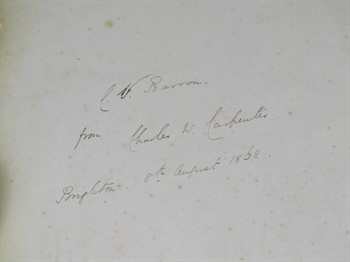 C. W. Barron
from Charles W. Carpenter
Brighton 8th August 1868.